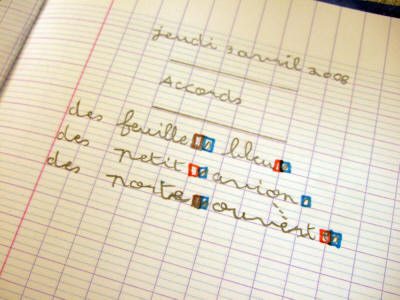 jeudi 3 avril 2008
Accords
des feuilles bleues
des petits avions
des portes ouvèrtes